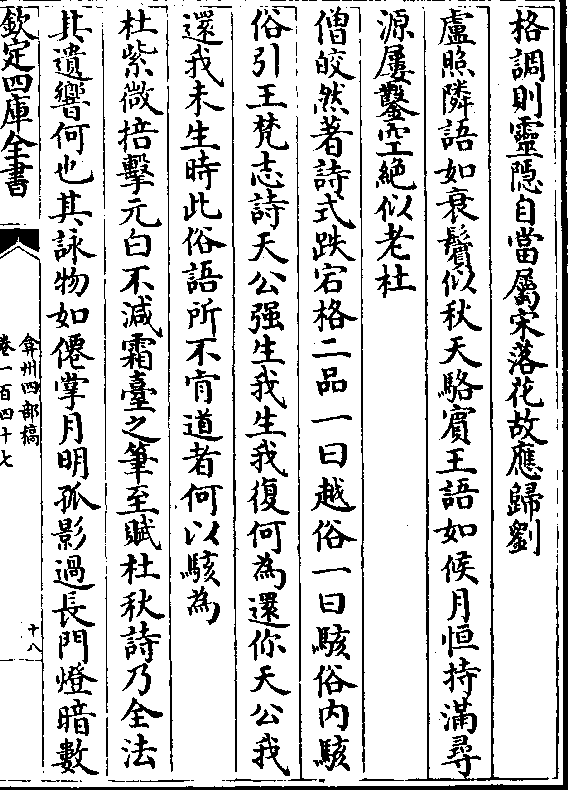 格調則靈隠自當屬宋落花故應歸劉
盧照隣語如衰鬢似秋天駱賓王語如候月恒持滿尋
源屢鑿空絶似老杜
僧皎然著詩式跌宕格二品一曰越俗一曰駭俗内駭
俗引王梵志詩天公强生我生我復何為還你天公我
還我未生時此俗語所不肯道者何以駭為
杜紫微掊擊元白不減霜臺之筆至賦杜秋詩乃全法
其遺響何也其詠物如僊掌月明孤影過長門燈暗數
欽定四庫全書
弇州四部稿
卷一百四十七
十八